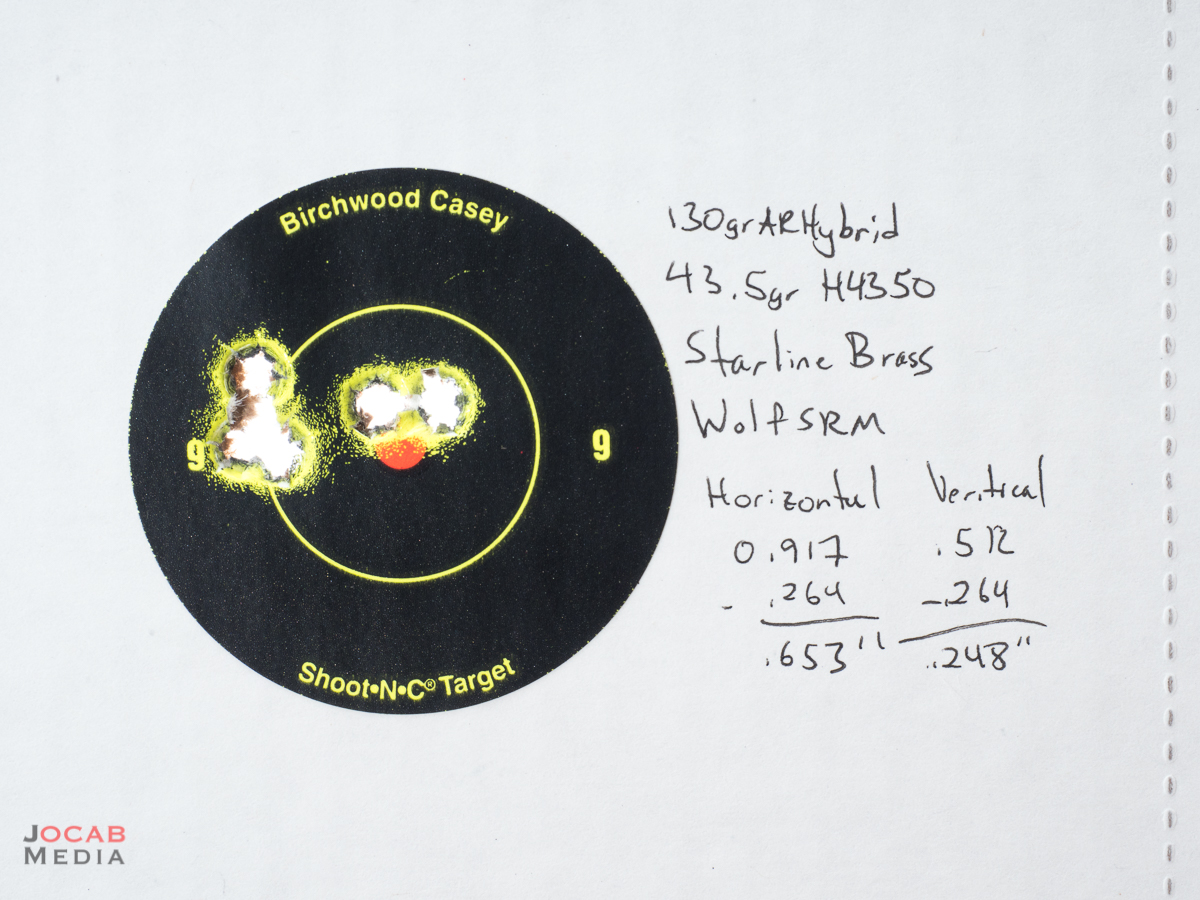 Birchwood Casey
9 9
Shoot•N•C® Target
130gr AR Hybrid
43.5gr H4350
Starline Brass
Wolf SRM
Horizontal Veritical
0.917 .512
- .264 - .264
.653" .248"
JOCAB
MEDIA